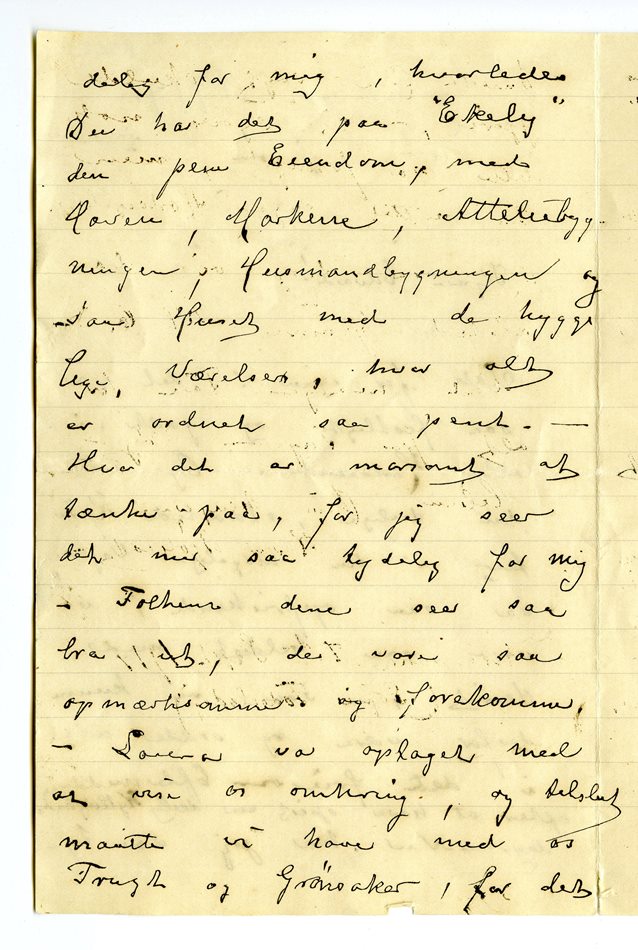 delig for mig, hvorledes
Du har det paa "Ekely"
den pene Eiendom, med
Haven, Markene, Attelierbyg-
ningen, Husmandbygningen og
saa Huset med de hygge
lige, Værelser, hvor alt
er ordnet saa pent. —
Hvor det er morsomt at
tænke paa, for jeg seer
det nu saa tydelig for mig
- Folkene dine seer saa
bra ut, de vare saa
opmærksomme og forekomne,
- Lovera var optaget med
at vise os omkring, og tilslut
maatte vi have med os
Frugt og Grönsaker, for det